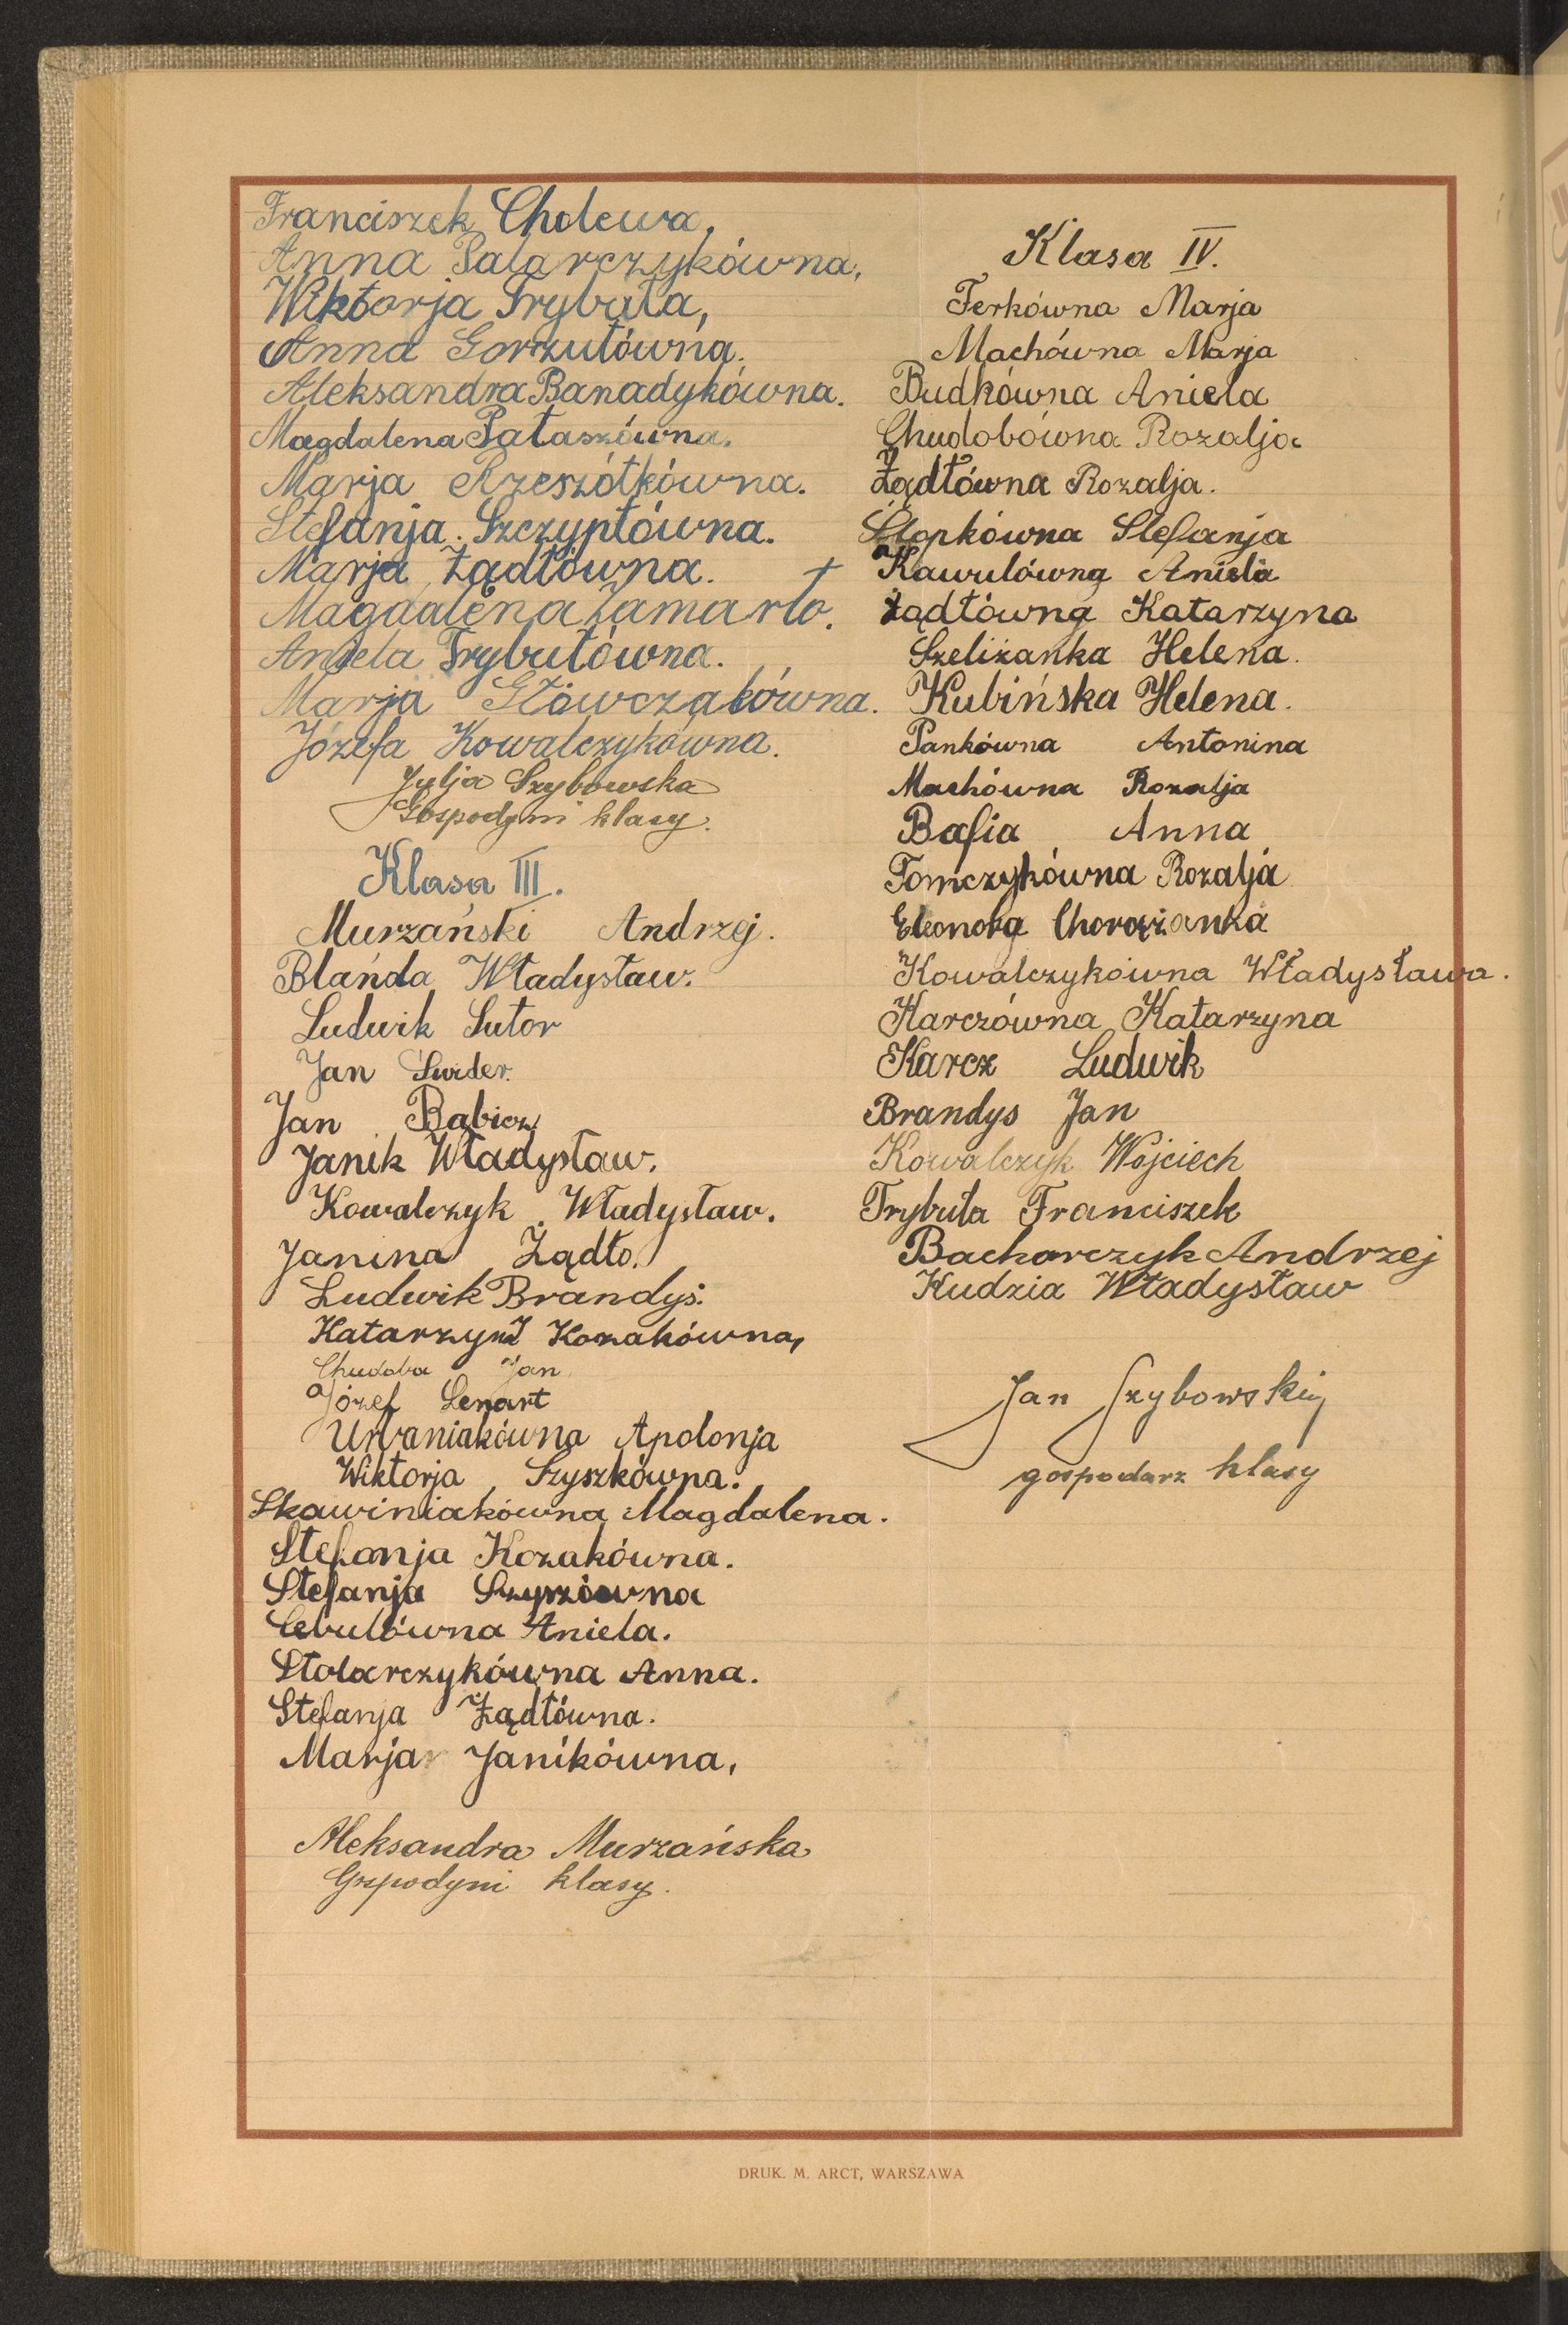 Franciszek Cholewa,
Anna Palarczykówna,
Wiktorja Trybała,
Anna Gorzułówna.
Aleksandra Banadykówna.
Magdalena Pałaszówna.
Marja Rzeszótkówna.
Stefanja Szczyptówna.
Marja Żądłówna.
Magdalena Zamarło.
Aniela Trybułówna.
Marja Główczakówna.
Józefa Kowalczykówna.
Julja Szybowska
Gospodyni klasy.
Klasa III.
Murzański Andrzej.
Blańda Władysław.
Ludwik Sutor
Jan Świder.
Jan Bąbicz
Janik Władysław.
Kowalczyk Władysław.
Janina Żądło.
Ludwik Brandys.
Katarzyna Kozakówna,
Chudoba Jan
Józef Lenart
Urbaniakówna Apolonja
Wiktorja Szyszkówna.
Skawiniakówna Magdalena.
Stefanja Kozakówna.
Stefanja Szyszówna
Cebulówna Aniela.
Stolarczykówna Anna.
Stefanja Żądłówna.
Marja Janikówna,
Aleksandra Murzańska
Gospodyni klasy.
Klasa IV.
Ferkówna Marja
Machówna Marja
Budkówna Aniela
Chudobówna Rozalja
Żądłówna Rozalja.
Słopkówna Stefanja
Kawulówna Aniela
Żądłówna Katarzyna
Szeliżanka Helena.
Kubińska Helena.
Pankówna Antonina
Machówna Rozalja
Bafia Anna
Tomczykówna Rozalja
Eleonora Chorążanka
Kowalczykówna Władysława.
Karczówna Katarzyna
Karcz Ludwik
Brandys Jan
Kowalczyk Wojciech
Trybuła Franciszek
Bacharczyk Andrzej
Kudzia Władysław
Jan Szybowski
gospodarz klasy
DRUK. M. ARCT, WARSZAWA